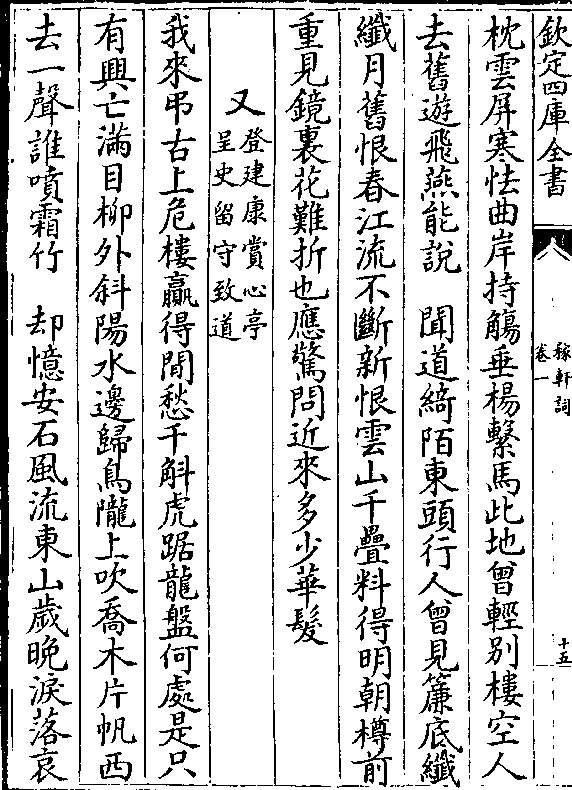 欽定四庫全書
稼軒詞
卷一
十五
枕雲屏寒怯曲岸持觴垂楊繫馬此地曾輕别樓空人
去舊遊飛燕能説　聞道綺陌東頭行人曾見簾底纖
纖月舊恨春江流不斷新恨雲山千疊料得明朝樽前
重見鏡裏花難折也應驚問近來多少華髮
又
登建康賞心亭
呈史留守致道
我來弔古上危樓贏得閒愁千斛虎踞龍盤何處是只
有興亡滿目柳外斜陽水邊歸鳥隴上吹喬木片帆西
去一聲誰噴霜竹　却憶安石風流東山歲晚淚落哀